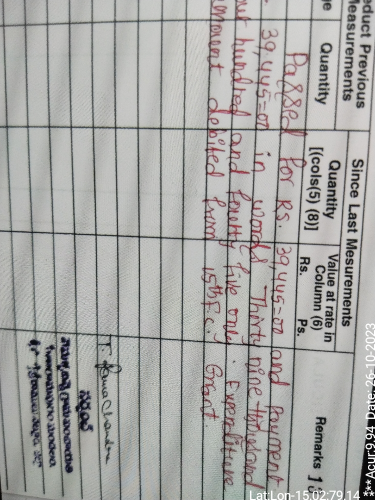 educt Previous
Measurements
Since Last Mesurements
Quantity
Quantity
[(cols(5) (8)]
Value at rate in
Column (6)
Rs. Ps.
Remarks
Passed for Rs. 39,445=00 and Payment
39,445=00 in words Thirty nine thousand
four hundred and Fourty five only. Expenditure
debited from 15th F.C. Grant.
Lat:Lon-15.02:79.14
***Acur:9.94 Date:26-10-2023